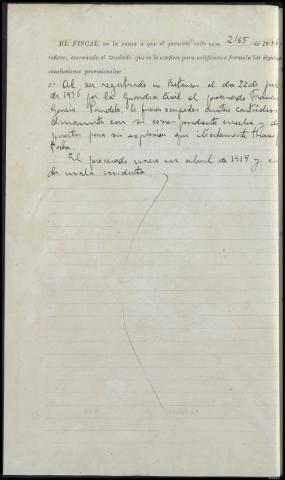 EL FISCAL en la causa a que el presente rollo núm. 2165 de 1936
refiere, evacuando el traslado que se le confiere para calificación formula las siguien
conclusiones provisionales:
1ª Al ser registrado en Betanzos el día 22 de
de 1936 por la Guardia Civil el procesado
García le fueron ocupados cuatro cartuchos
dinamita con su correspondiente mecha y
puestos para su explosión que ilícitamente
El procesado nació en abril de 1919 y
de mala conducta